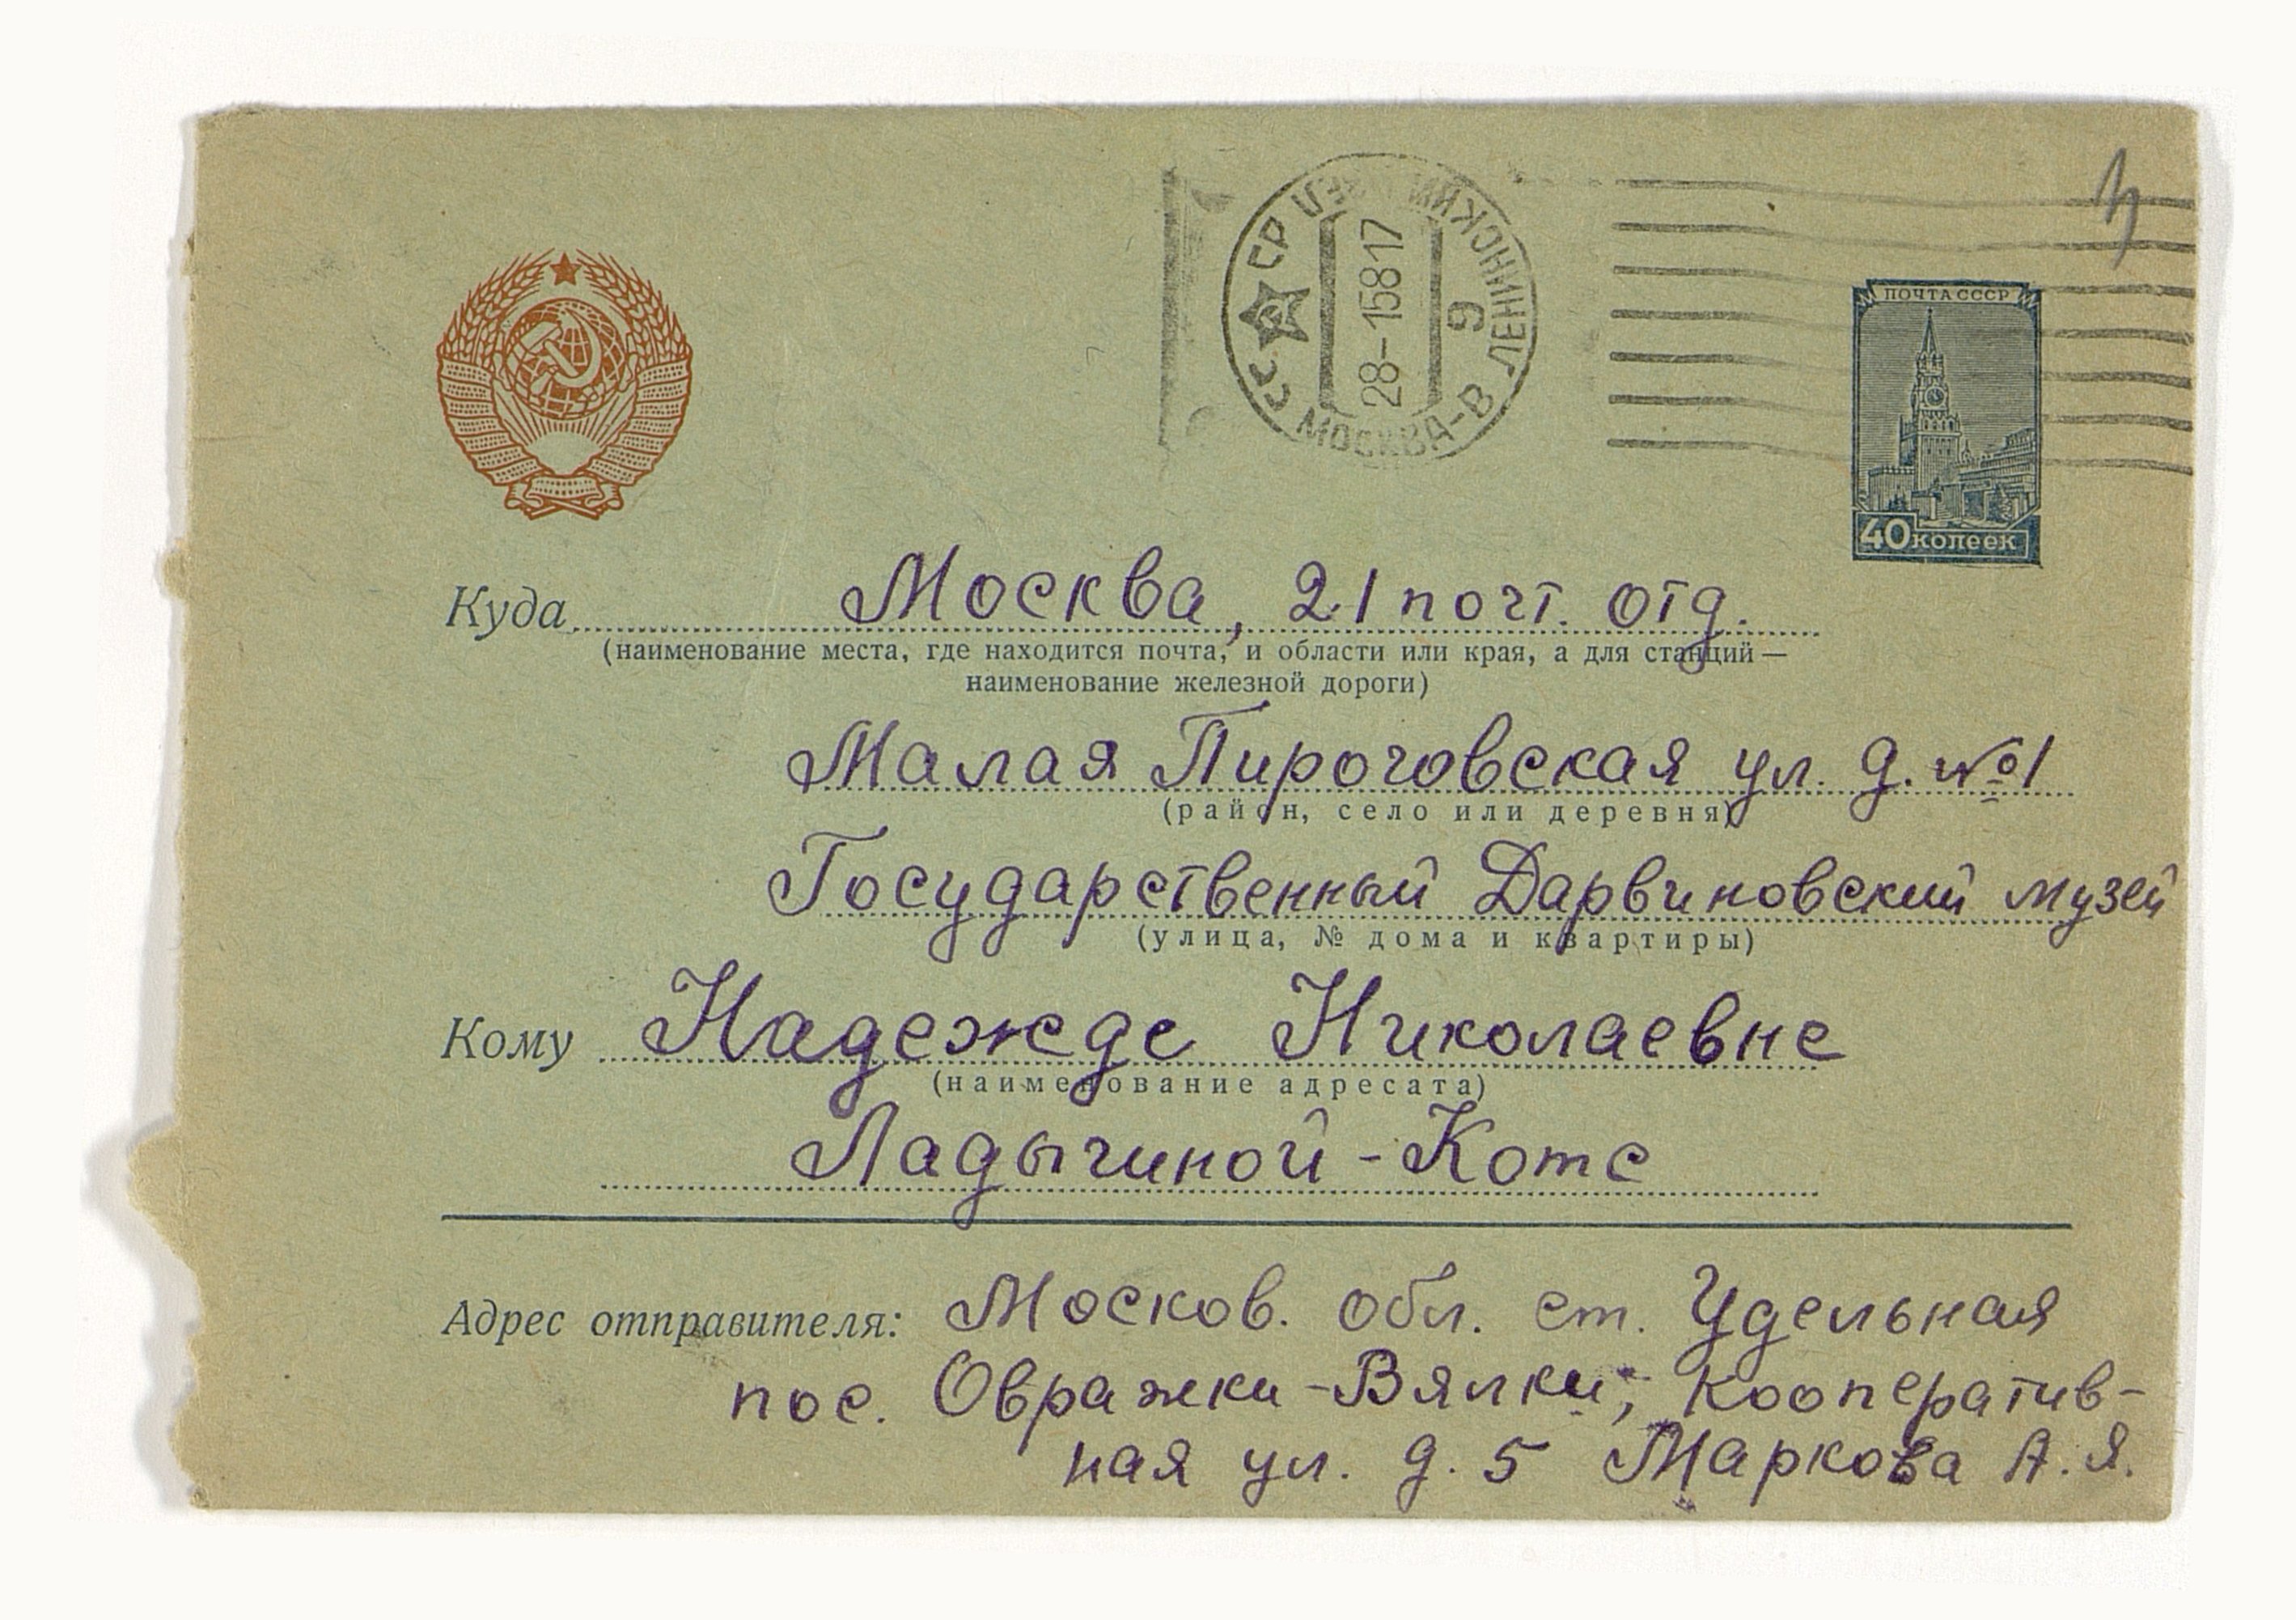 СССР
28-15817
9
МОСКВА-В ЛЕНИНСКИЙ
ПОЧТА СССР
40 копеек
Куда Москва, 21 почт. отд.
(наименование места, где находится почта, и области или края, а для станций—
наименование железной дороги)
Малая Пироговская ул. д. №1
(район, село или деревня)
Государственный Дарвиновский музей
(улица, № дома и квартиры)
Кому Надежде Николаевне
(наименование адресата)
Ладыгиной-Котс
Адрес отправителя: Москов. обл. ст. Удельная
пос. Овражки-Вялки; Кооператив-
ная ул. д. 5 Маркова А. Я.